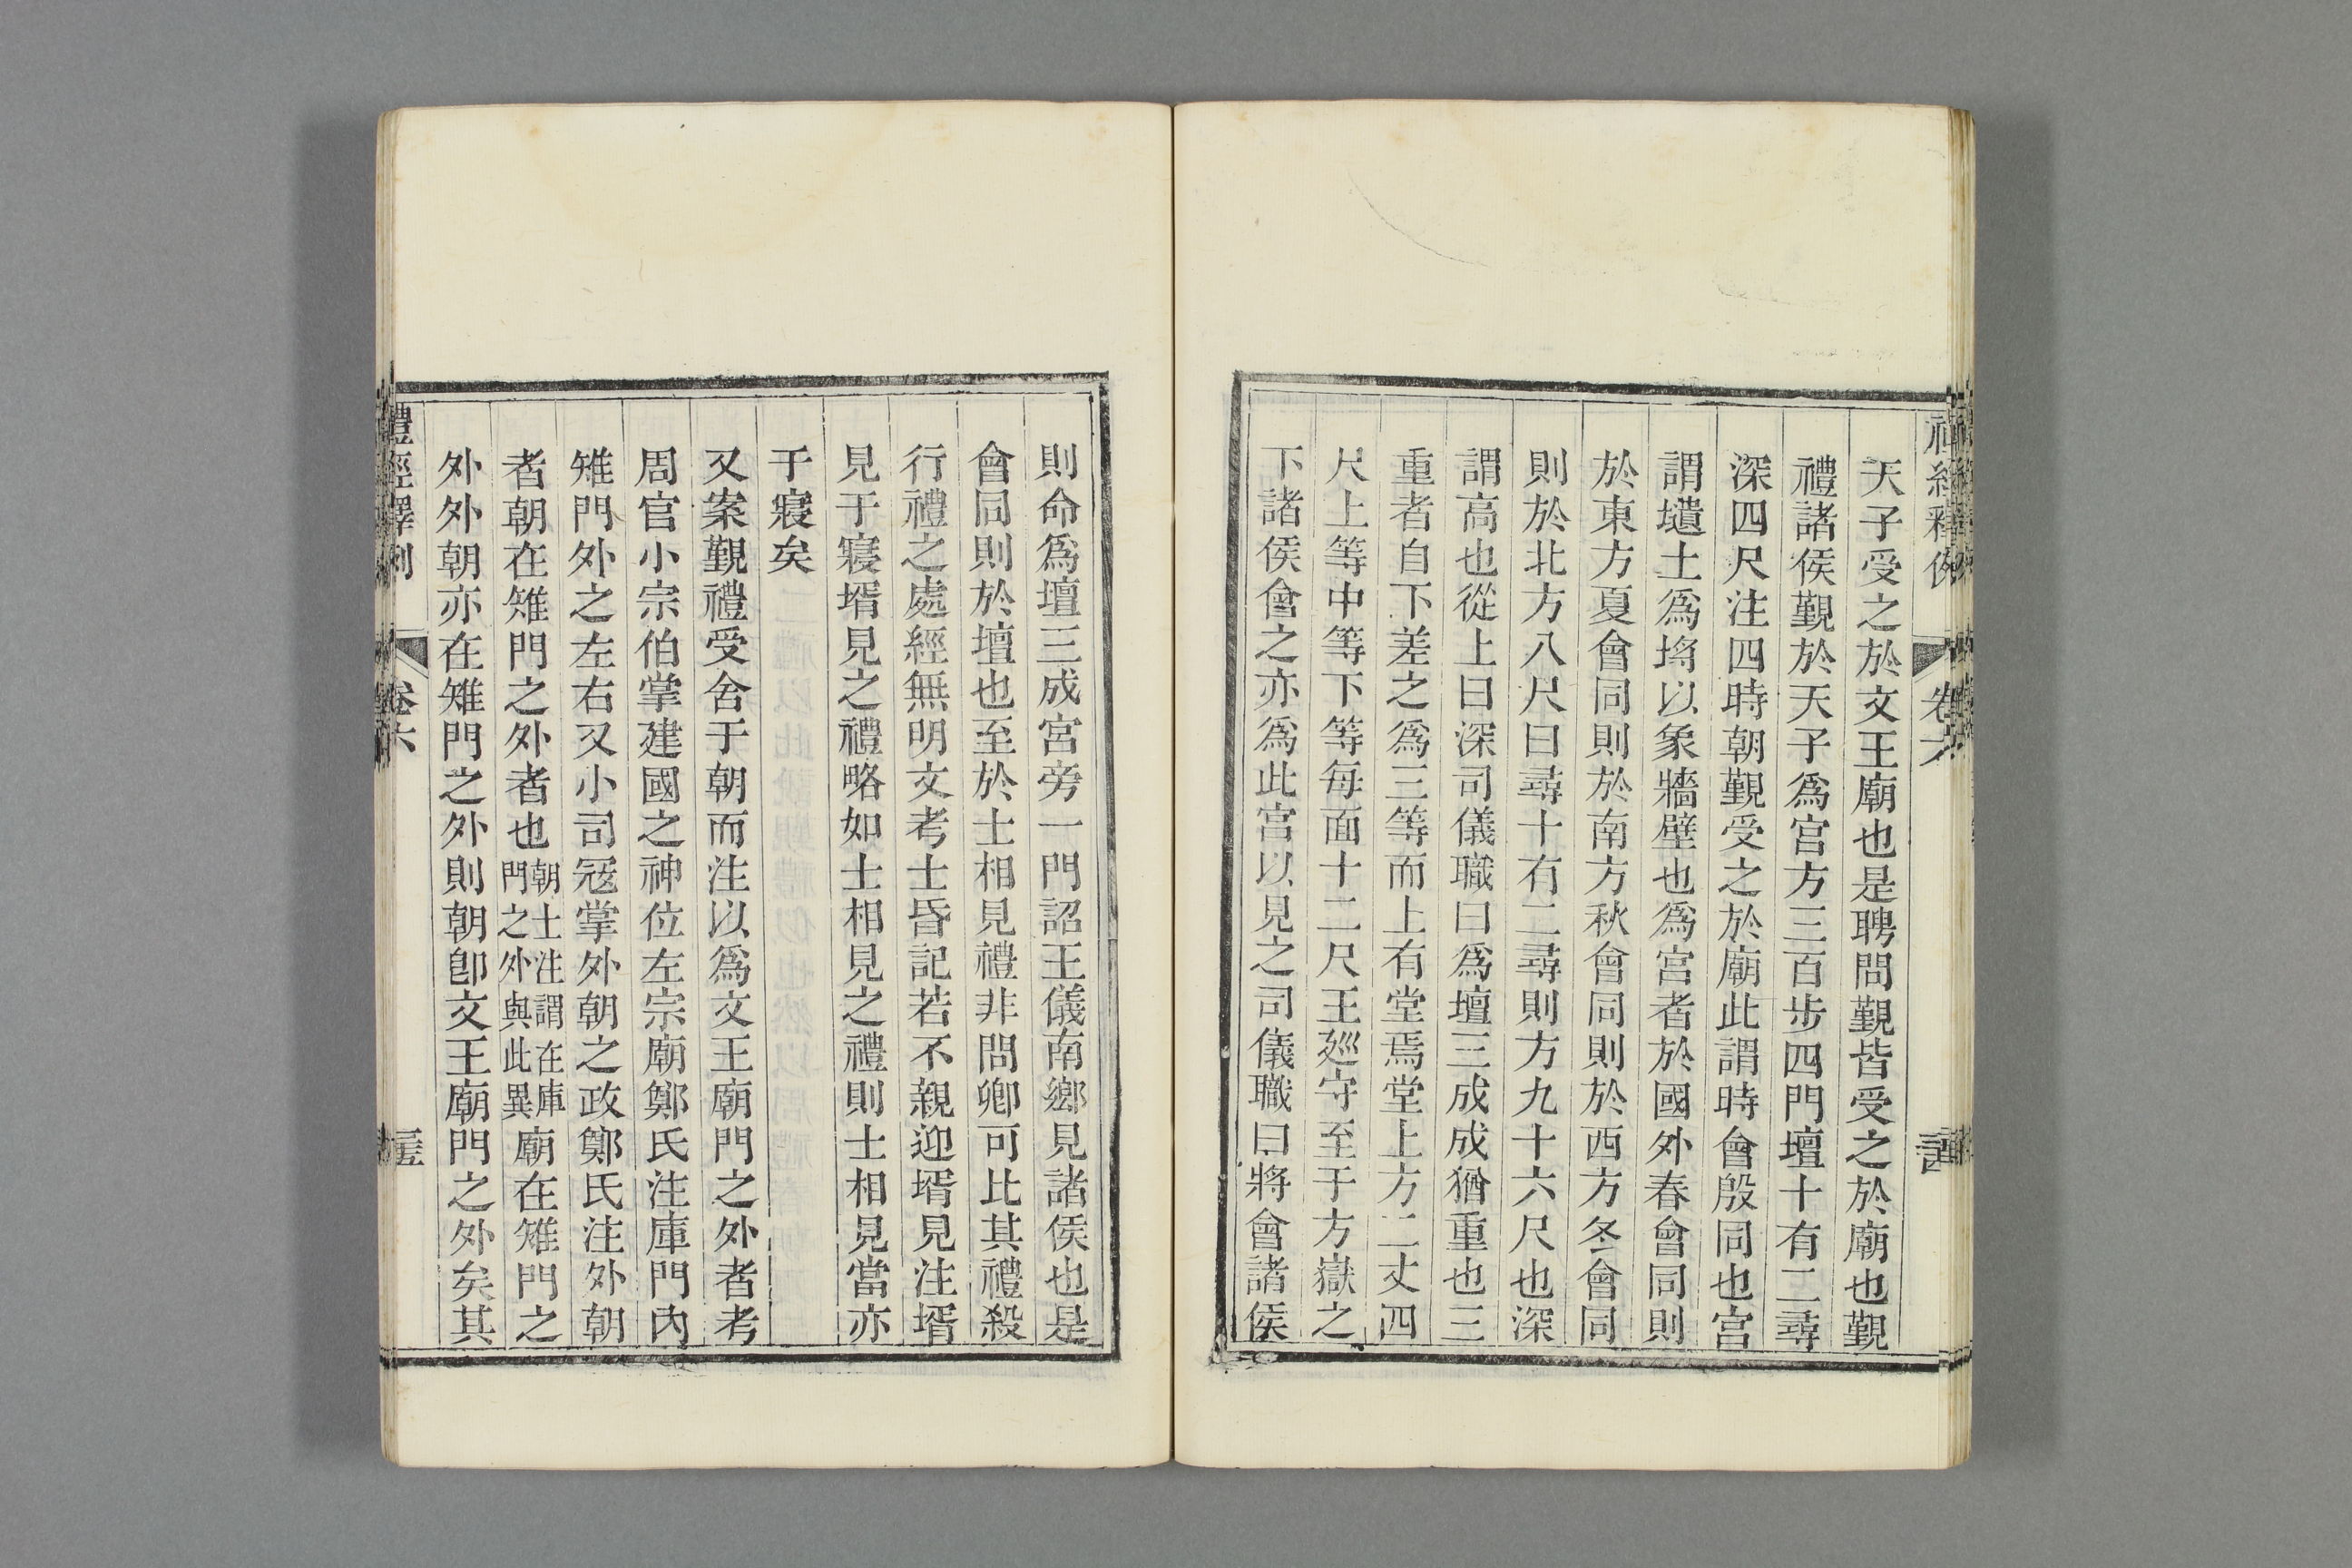 禮經釋例
卷六
天子受之於文王廟也是聘問覲皆受之於廟也覲
禮諸侯覲於天子爲宮方三百步四門壇十有二尋
深四尺注四時朝覲受之於廟此謂時會殷同也宮
謂壝土爲埒以象牆壁也爲宮者於國外春會同則
於東方夏會同則於南方秋會同則於西方冬會同
則於北方八尺曰尋十有二尋則方九十六尺也深
謂高也從上曰深司儀職曰爲壇三成成猶重也三
重者自下差之爲三等而上有堂焉堂上方二丈四
尺上等中等下等每面十二尺王廵守至于方嶽之
下諸侯會之亦爲此宮以見之司儀職曰將會諸侯
則命爲壇三成宮旁一門詔王儀南鄉見諸侯也是
會同則於壇也至於士相見禮非問卿可比其禮殺
行禮之處經無明文考士昏記若不親迎壻見注壻
見于寢壻見之禮略如士相見之禮則士相見當亦
于寢矣
又案覲禮受舍于朝而注以爲文王廟門之外者考
周官小宗伯掌建國之神位左宗廟鄭氏注庫門內
雉門外之左右又小司寇掌外朝之政鄭氏注外朝
者朝在雉門之外者也朝士注謂在庫門之外與此異廟在雉門之
外外朝亦在雉門之外則朝卽文王廟門之外矣其
禮經釋例
卷六